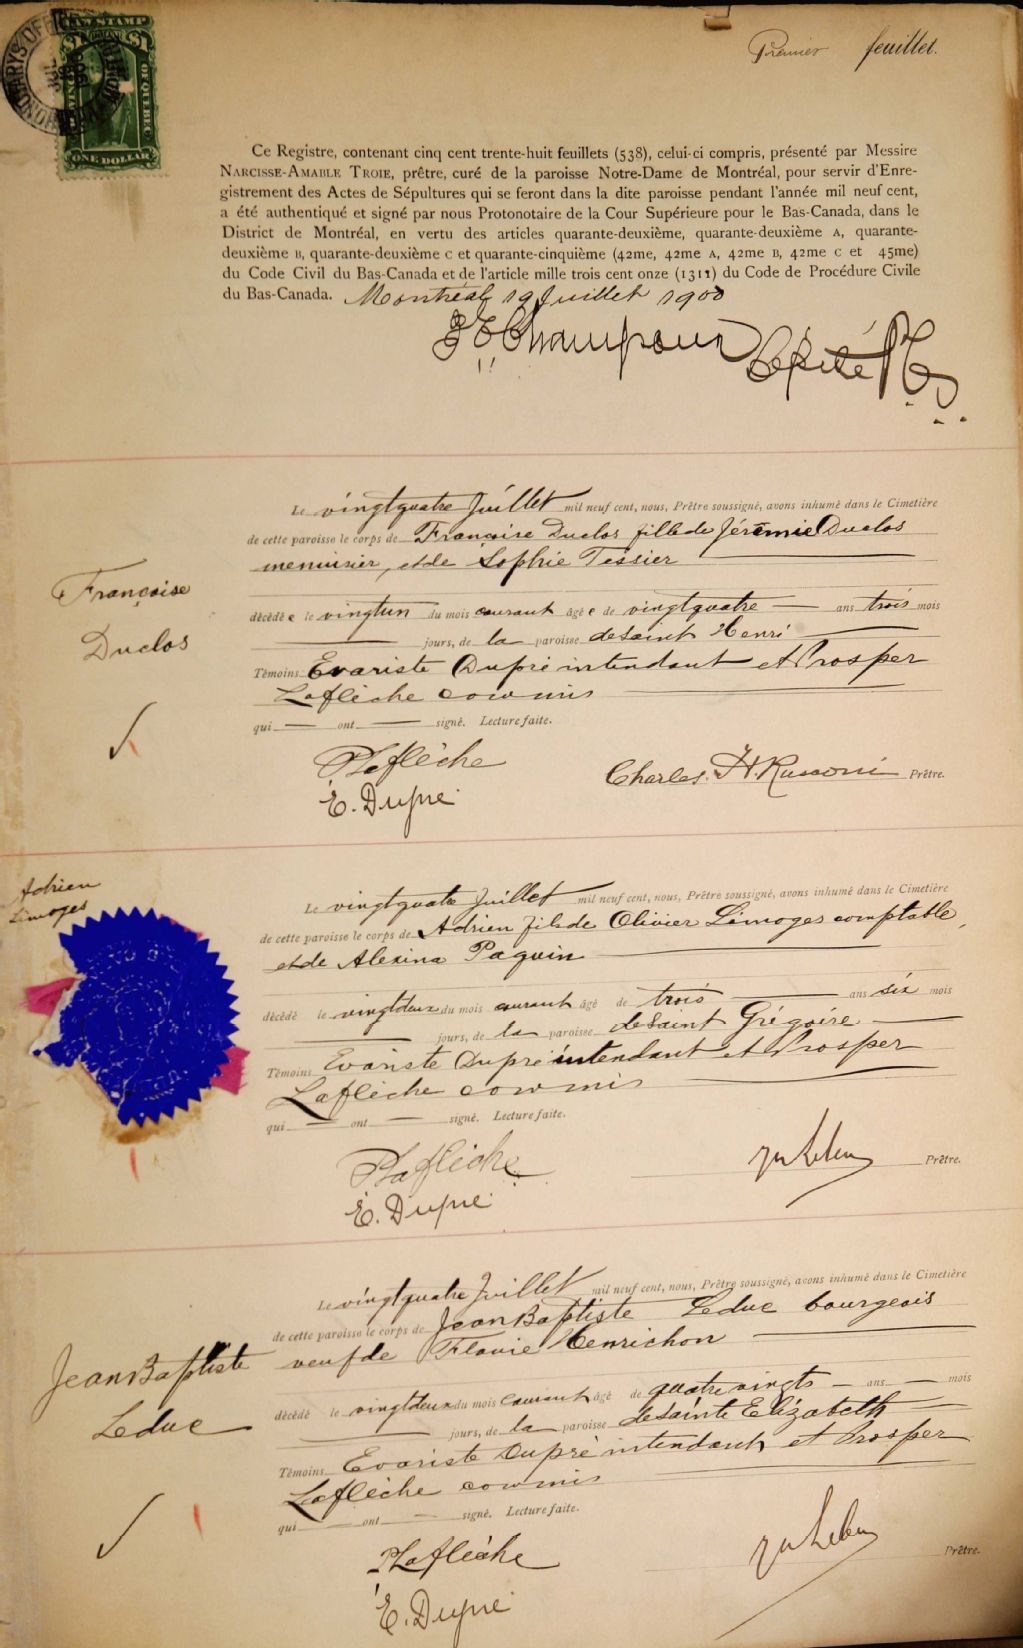 LAW STAMP
$1 $1
OF QUEBEC
ONE DOLLAR
Premier feuillet.
Ce Registre, contenant cinq cent trente-huit feuillets (538), celui-ci compris, présenté par Messire
NARCISSE-AMABLE TROIE, prêtre, curé de la paroisse Notre-Dame de Montréal, pour servir d'Enre-
gistrement des Actes de Sépultures qui se feront dans la dite paroisse pendant l'année mil neuf cent,
a été authentiqué et signé par nous Protonotaire de la Cour Supérieure pour le Bas-Canada, dans le
District de Montréal, en vertu des articles quarante-deuxième, quarante-deuxième A, quarante-
deuxième B, quarante-deuxième C et quarante-cinquième (42me, 42me A, 42me B, 42me C et 45me)
du Code Civil du Bas-Canada et de l'article mille trois cent onze (1311) du Code de Procédure Civile
du Bas-Canada. Montréal 19 Juillet 1900
Champoux
Françoise
Duclos
Le vingtquatre Juillet mil neuf cent, nous, Prêtre soussigné, avons inhumé dans le Cimetière
de cette paroisse le corps de Françoise Duclos fille de Jérémie Duclos
menuisier, et de Sophie Tessier
décédée le vingtun du mois courant âgée de vingtquatre ans trois mois
jours, de la paroisse de Saint Henri
Témoins Evariste Dupré intendant et Prosper
Laflèche commis
qui ont signé. Lecture faite.
PLaflèche
E. Dupré
Charles. H. Rusconi Prêtre.
Adrien
Limoges
Le vingtquatre Juillet mil neuf cent, nous, Prêtre soussigné, avons inhumé dans le Cimetière
de cette paroisse le corps de Adrien fils de Olivier Limoges comptable,
et de Alexina Paquin
décédé le vingtdeux du mois courant âgé de trois ans six mois
jours, de la paroisse de Saint Grégoire
Témoins Evariste Dupré intendant et Prosper
Laflèche commis
qui ont signé. Lecture faite.
PLaflèche
E. Dupré
Prêtre.
Jean Baptiste
Leduc
Le vingtquatre Juillet mil neuf cent, nous, Prêtre soussigné, avons inhumé dans le Cimetière
de cette paroisse le corps de Jean Baptiste Leduc bourgeois
veuf de Flavie Henrichon
décédé le vingtdeux du mois courant âgé de quatre vingts ans mois
jours, de la paroisse de Sainte Elizabeth
Témoins Evariste Dupré intendant et Prosper
Laflèche commis
qui ont signé. Lecture faite.
PLaflèche
E. Dupré
Prêtre.